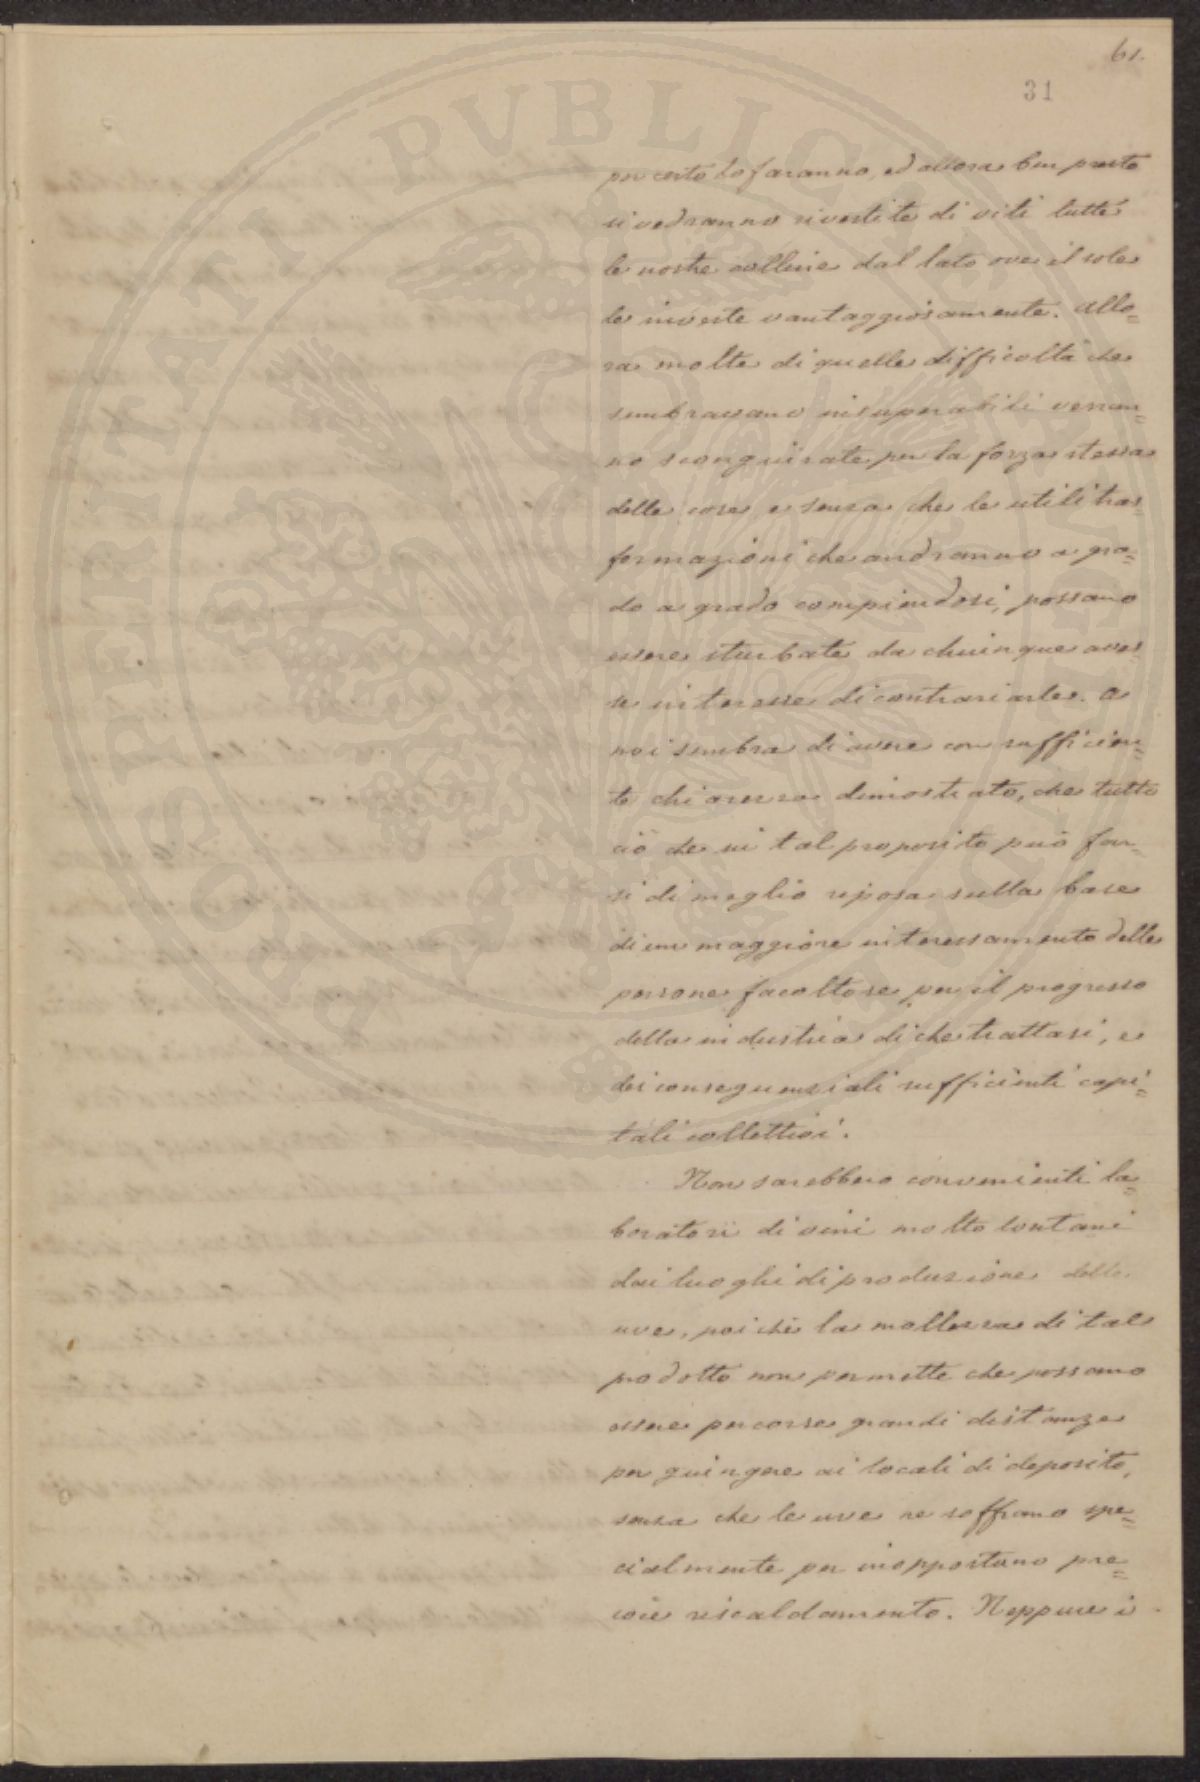 61.
31
per certo lo faranno, ed allora ben presto
si vedranno rivestite di viti tutte
le nostre colline dal lato ove il sole
le investe vantaggiosamente. Allo=
ra molte di quelle difficoltà che
sembravano insuperabili verran=
no scongiurate per la forza stessa
delle cose e senza che le utili tras=
formazioni che andranno a gra=
do a grado compiendosi, possano
essere sturbate da chiunque aves=
se interesse di contrariarle. A
noi sembra di avere con sufficien=
te chiarezza dimostrato, che tutto
ciò che in tal proposito può far=
si di meglio riposa sulla base
di un maggiore interessamento delle
persone facoltose per il progresso
della industria di che trattasi, e
dei conseguenziali sufficienti capi=
tali collettivi.
Non sarebbero convenienti la=
boratori di vini molto lontani
dai luoghi di produzione delle
uve, poichè la mollezza di tale
prodotto non permette che possano
essere percorse grandi distanze
per giungere ai locali di deposito,
senza che le uve ne soffrano spe=
cialmente per inopportuno pre=
coce riscaldamento. Neppure i
PROSPERITATI PVBLICAE